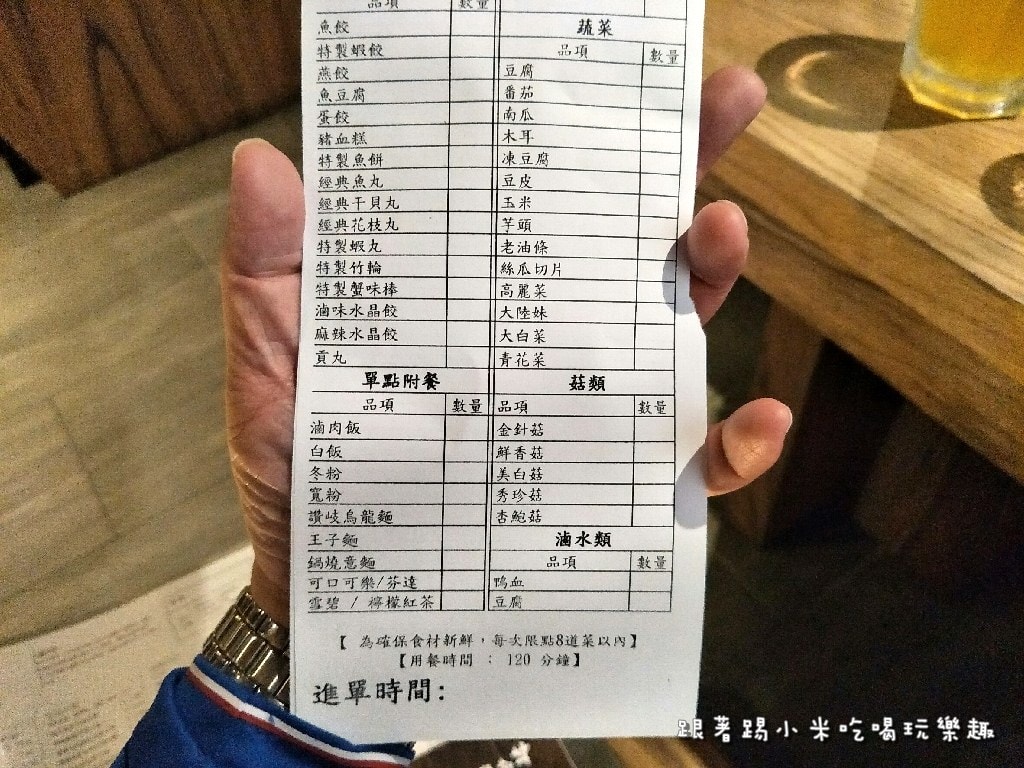 品項 數量
魚餃
特製蝦餃
燕餃
魚豆腐
蛋餃
豬血糕
特製魚餅
經典魚丸
經典干貝丸
經典花枝丸
特製蝦丸
特製竹輪
特製蟹味棒
滷味水晶餃
麻辣水晶餃
貢丸
單點附餐
品項 數量
滷肉飯
白飯
冬粉
寬粉
讚岐烏龍麵
王子麵
鍋燒意麵
可口可樂/芬達
雪碧 / 檸檬紅茶
蔬菜
品項 數量
豆腐
番茄
南瓜
木耳
凍豆腐
豆皮
玉米
芋頭
老油條
絲瓜切片
高麗菜
大陸妹
大白菜
青花菜
菇類
品項 數量
金針菇
鮮香菇
美白菇
秀珍菇
杏鮑菇
滷水類
品項 數量
鴨血
豆腐
【 為確保食材新鮮，每次限點8道菜以內】
【用餐時間 ： 120 分鐘】
進單時間:
跟著踢小米吃喝玩樂趣